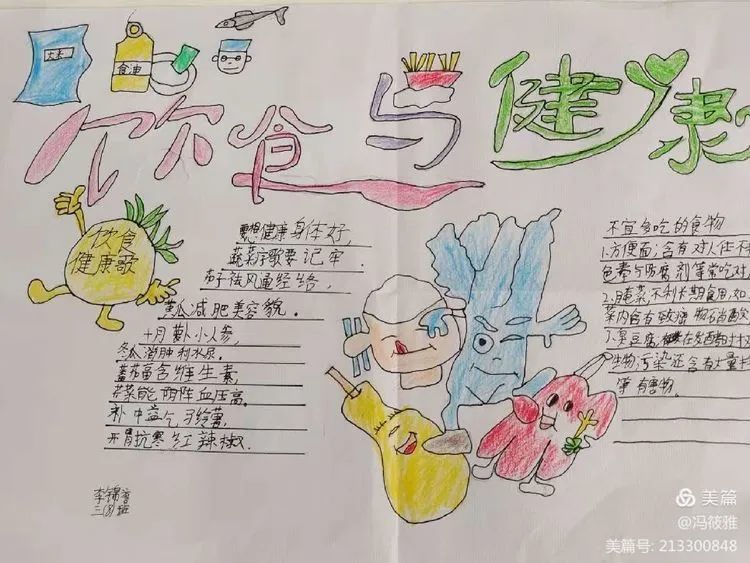 大米
食油
饮食与健康
饮食
健康歌
要想健康身体好,
蔬菜子歌要记牢.
芥子祛风通经络,
黄瓜减肥美容貌.
十月萝卜小人参,
冬瓜消肿利水尿.
蕃茄富含维生素,
芹菜能阻降血压高.
补中益气
开胃抗寒红辣椒.
李锦
三(8)班
不宜多吃的食物
1.方便面;含有对人体不
色素与防腐剂等常吃对
2.腌菜不利长期食用,如
菜内含有致癌物
臭豆腐
生物污染还含有大量
等有害物.
美篇
@冯筱雅
美篇号: 213300848